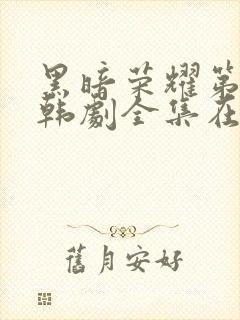 黑暗荣耀第
韩剧全集在
舊月安好